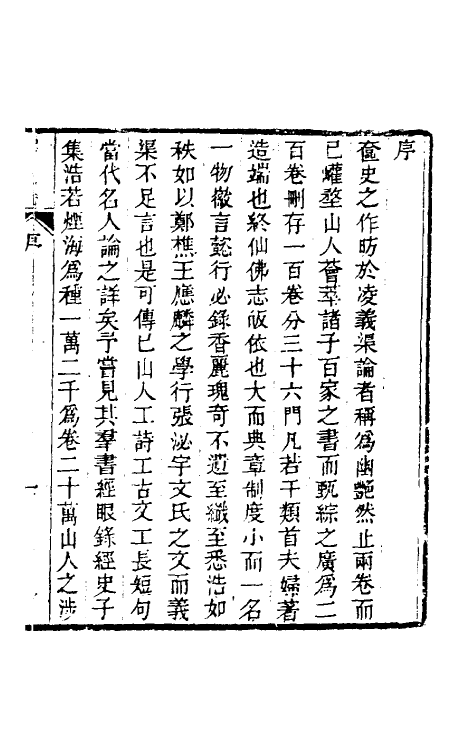 序
奩史之作昉於凌義渠論者稱爲幽艷然止兩卷而
已懽堥山人薈萃諸子百家之書而甄綜之廣爲二
百卷刪存一百卷分三十六門凡若干類首夫婦著
造端也終仙佛志皈依也大而典章制度小而一名
一物徽言懿行必錄香麗瑰奇不遺至纖至悉浩如
秩如以鄭樵王應麟之學行張泌宇文氏之文而義
渠不足言也是可傳已山人工詩工古文工長短句
當代名人論之詳矣予嘗見其羣書經眼錄經史子
集浩若煙海爲種一萬二千爲卷二十萬山人之涉
序
一